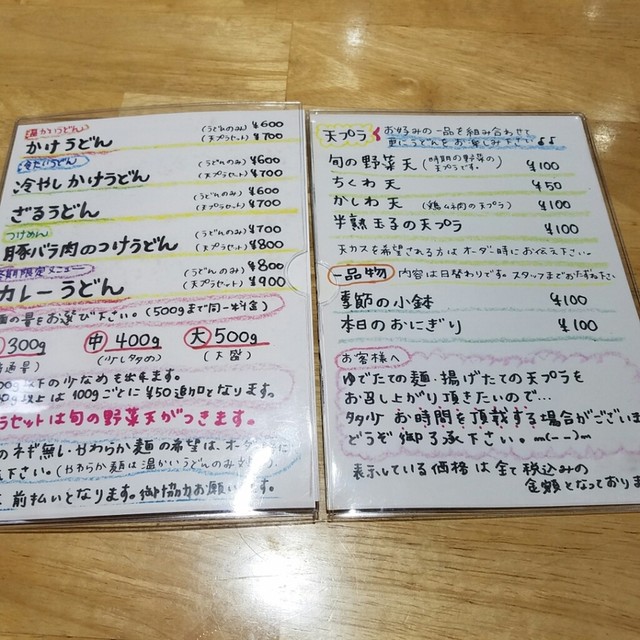 温かいうどん
かけうどん (うどんのみ) ¥600
(天プラセット) ¥700
冷たいうどん
冷やしかけうどん (うどんのみ) ¥600
(天プラセット) ¥700
ざるうどん (うどんのみ) ¥600
(天プラセット) ¥700
つけめん
豚バラ肉のつけうどん (うどんのみ) ¥700
(天プラセット) ¥800
期限定メニュー
カレーうどん (うどんのみ) ¥800
(天プラセット) ¥900
の量をお選び下さい。(500gまで同一料金)
300g 中 400g 大 500g
(少し多め) (大盛)
以下の少なめも出来ます。
以上は100gごとに¥50追加となります。
ラセットは旬の野菜天がつきます。
のネギ無し・やわらか麺の希望は、オーダー
下さい。(やわらか麺は温かいうどんのみ
前払いとなります。御協力お願い
天プラ お好みの一品を組み合わせて
更にうどんをお楽しみ下さい♪♪
旬の野菜天 (時期の野菜の天プラです。) ¥100
ちくわ天 ¥50
かしわ天 (鶏ムネ肉の天プラ) ¥100
半熟玉子の天プラ ¥100
天カスを希望される方はオーダー時にお伝え下さい。
一品物 内容は日替わりです。スタッフまでおたずね下さい
季節の小鉢 ¥100
本日のおにぎり ¥100
お客様へ
ゆでたての麺・揚げたての天プラを
お召し上がり頂きたいので…
多少お時間を頂戴する場合がございま
どうぞ御了承下さい。m(--)m
表示している価格は全て税込みの
金額となっておりま